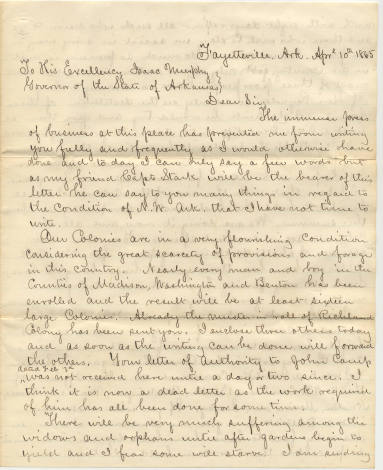 Fayetteville, Ark. Apr. 10th 1865
To His Excellency Isaac Murphy
Governor of the State of Arkansas
Dear Sir
The immense press
of business at this place has prevented me from writing
you fully and frequently as I would otherwise have
done and to day I can only say a few words but
as my friend Capt. Stark will be the bearer of this
letter he can say to you many things in regard to
the Condition of N.W. Ark. that I have not time to
write.
Our Colonies are in a very flourishing Condition
Considering the great scarcity of provisions and forage
in this Country. Nearly every man and boy in the
Counties of Madison, Washington and Benton has been
enrolled and the result will be at least sixteen
large Colonies. Already the muster in role of Richland
Colony has been sent you. I inclose three others today
and as soon as the writing can be done will forward
the others. Your letter of Authority to John Camp
dated Feb. 3d
was not received here until a day or two since. I
think it is now a dead letter as the work required
of him has all been done for some time.
There will be very much suffering among the
widows and orphans until after gardens begin to
yield and I fear some will starve. I am sending